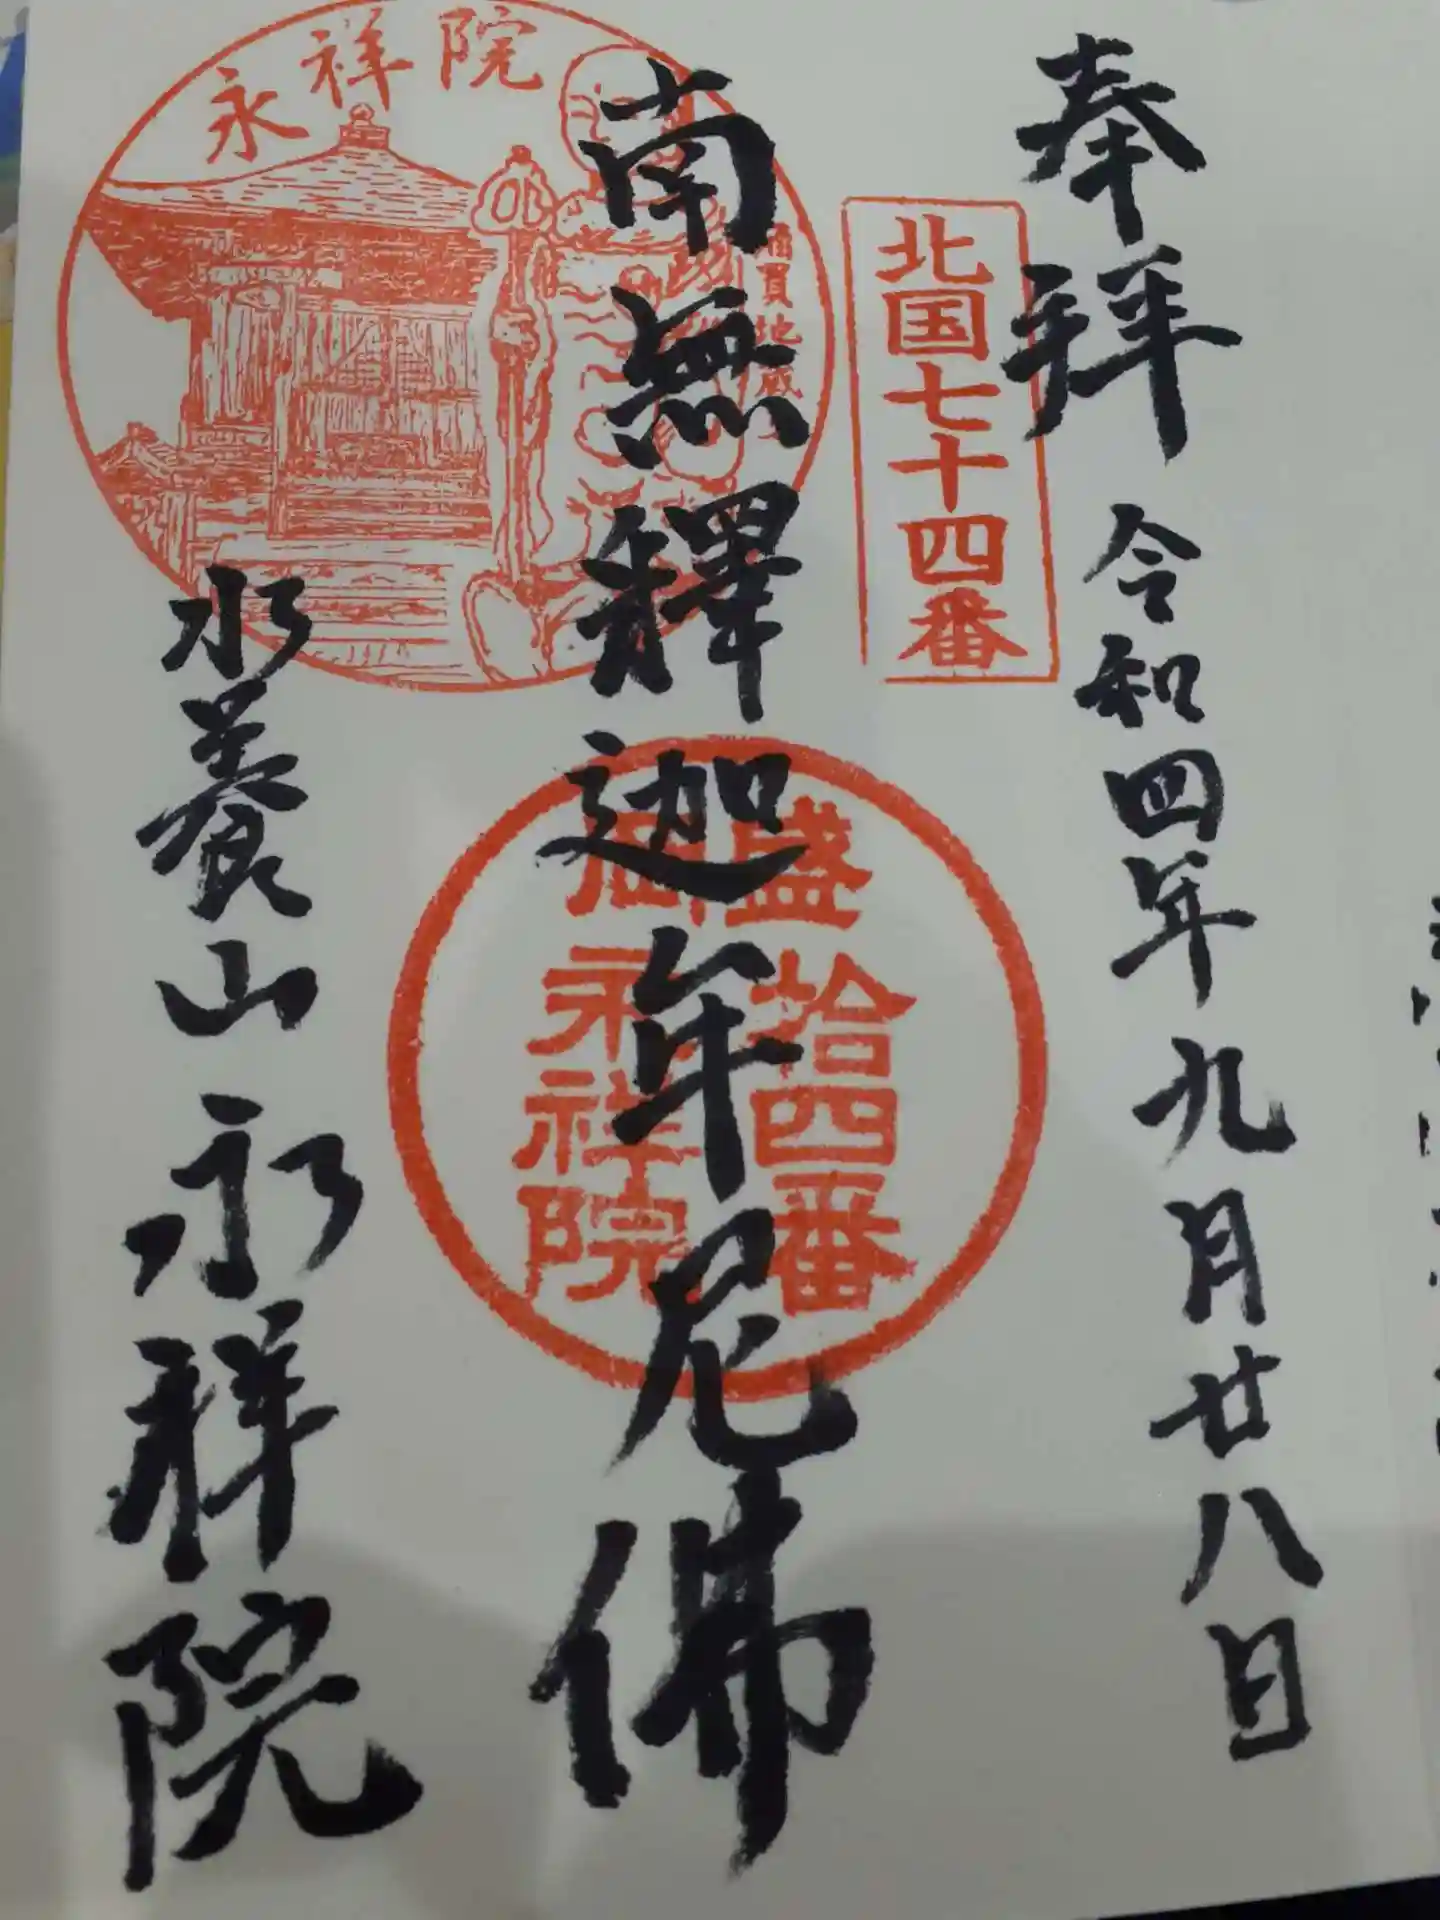 奉拜
令和四年九月廿八日
北国七十四番
南無釋迦牟尼佛
永祥院
地蔵
盛
拾四番
永祥院
水養山
永祥院